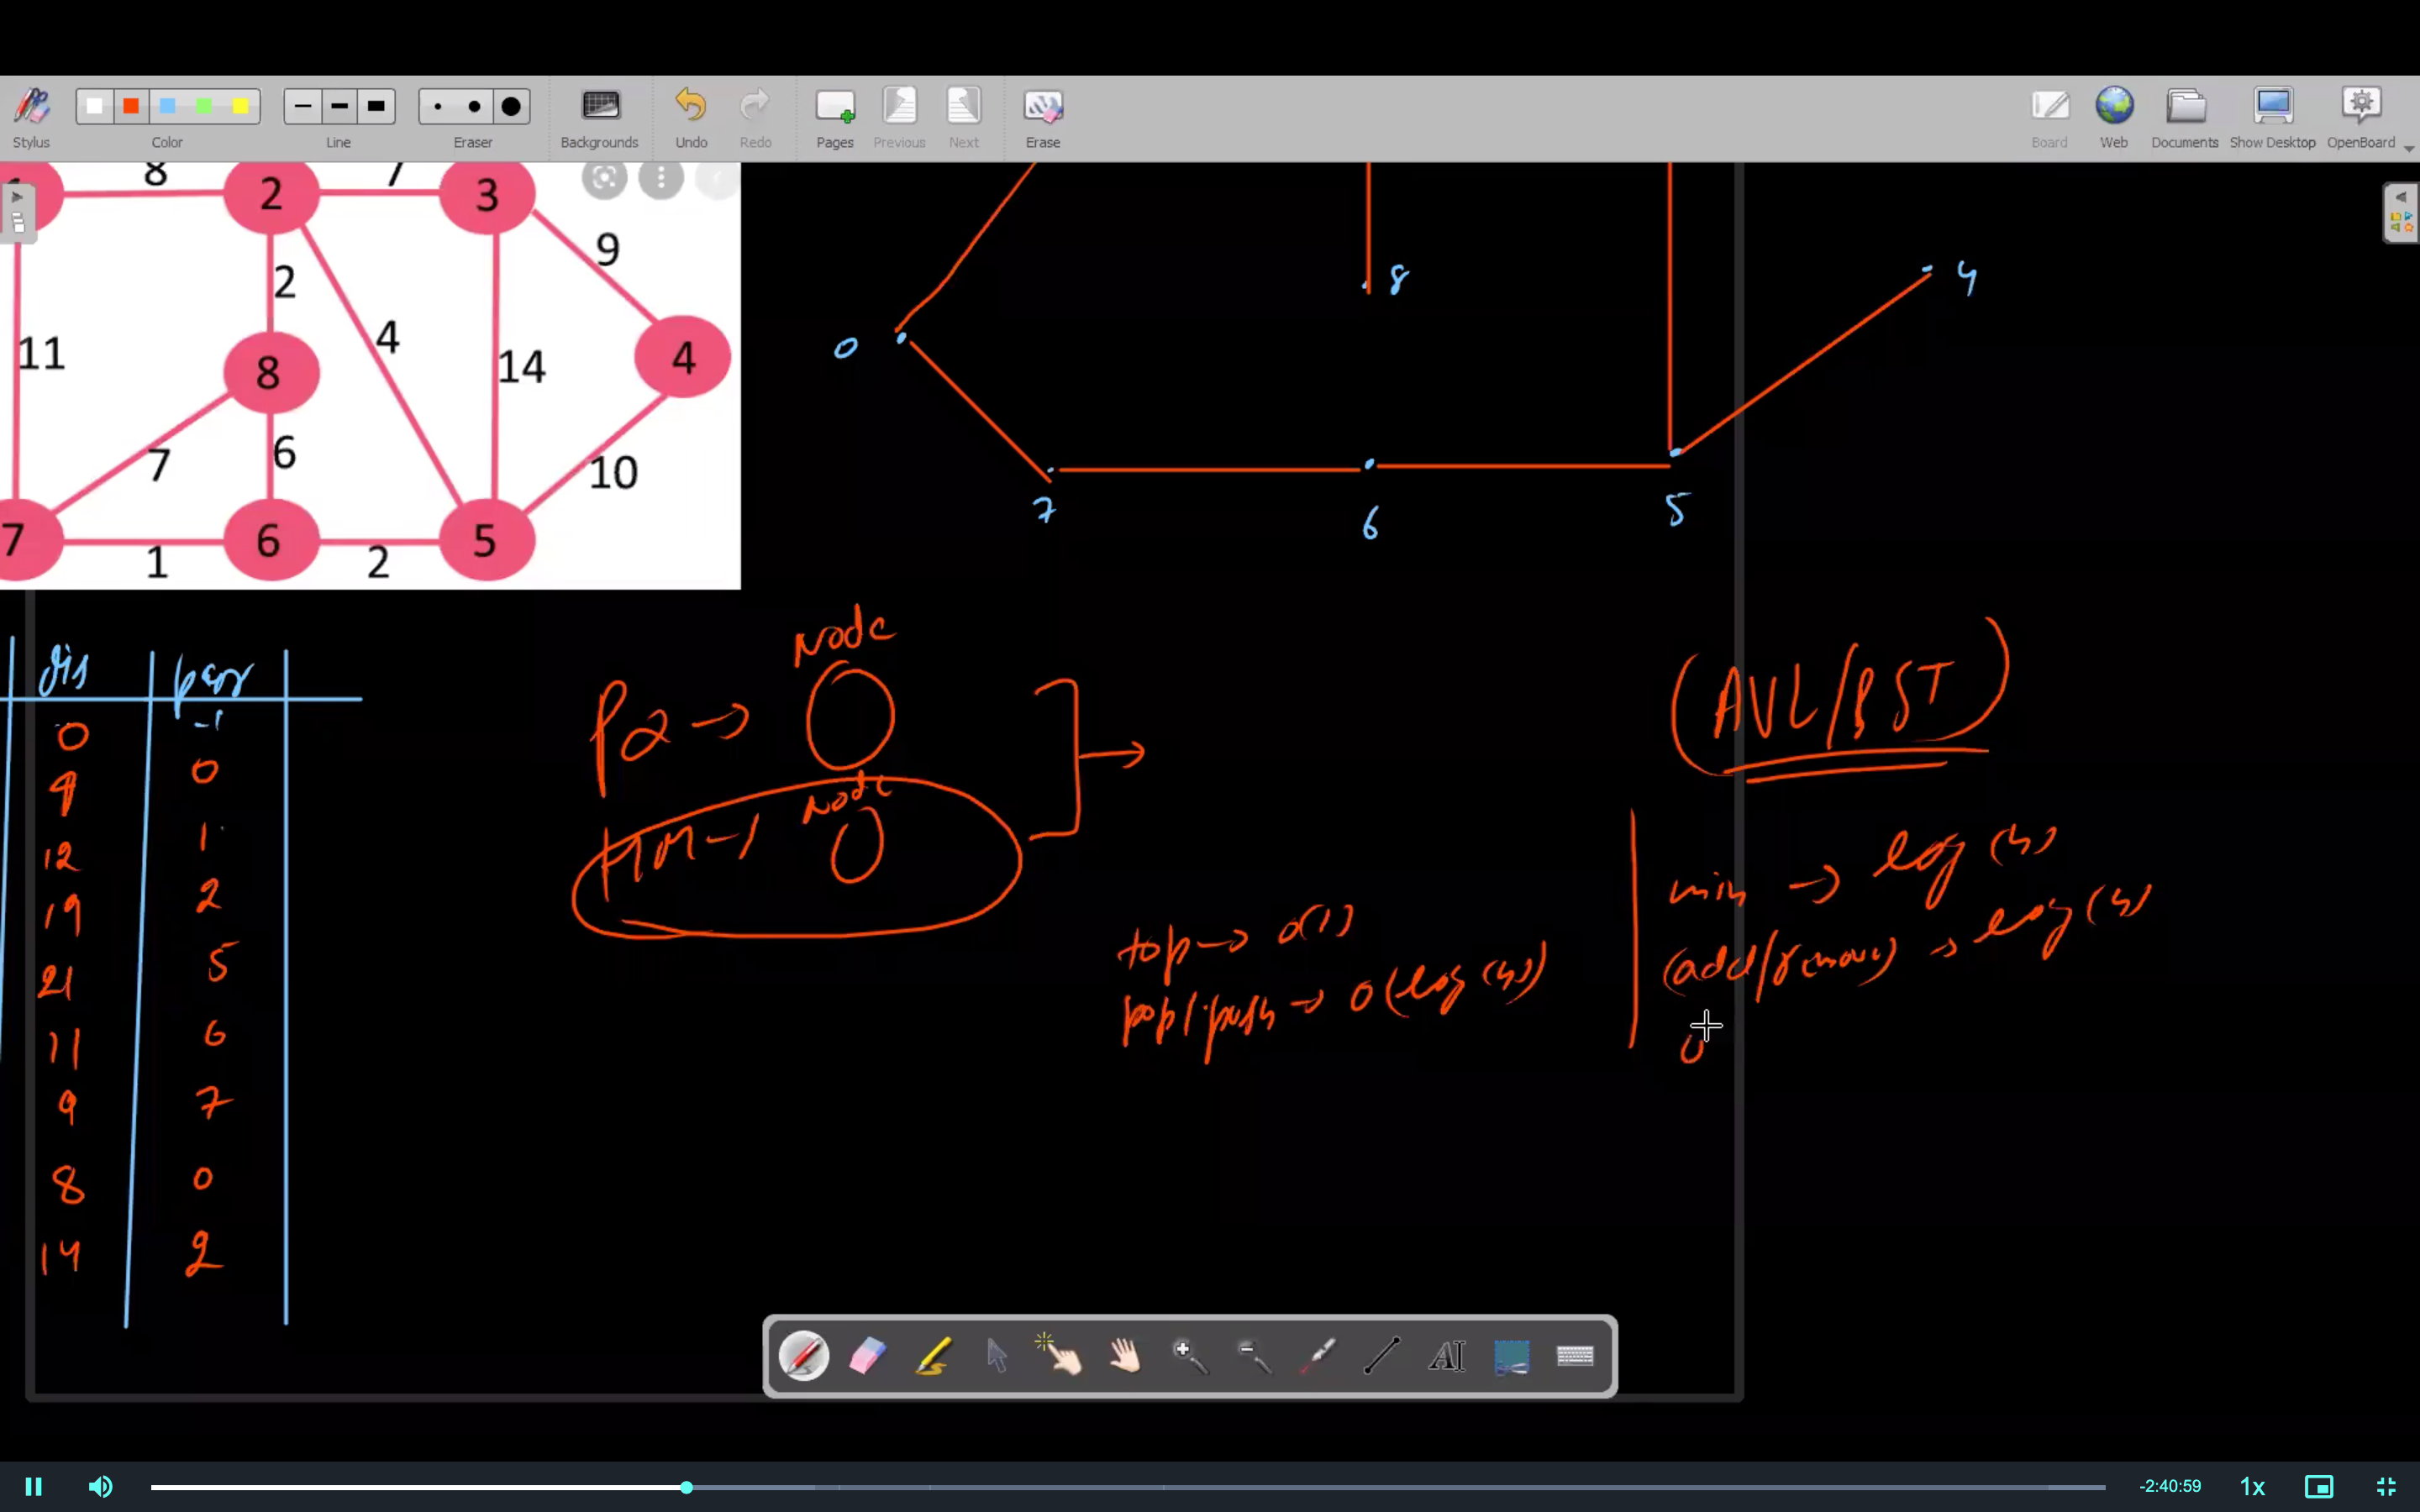 Stylus
Color
Line
Eraser
Backgrounds
Undo
Redo
Pages
Previous
Next
Erase
Board
Web
Documents
Show Desktop
OpenBoard
8
2
7
3
9
2
11
8
4
14
4
7
6
10
7
1
6
2
5
0
8
4
7
6
5
dis par
0 -1
9 0
12 1
19 2
21 5
11 6
9 7
8 0
14 2
PQ → Node
HM-1 Node
top → O(1)
pop/push → O(log(n))
(AVL/BST)
min → log(n)
(add/remove) → log(n)
-2:40:59
1x